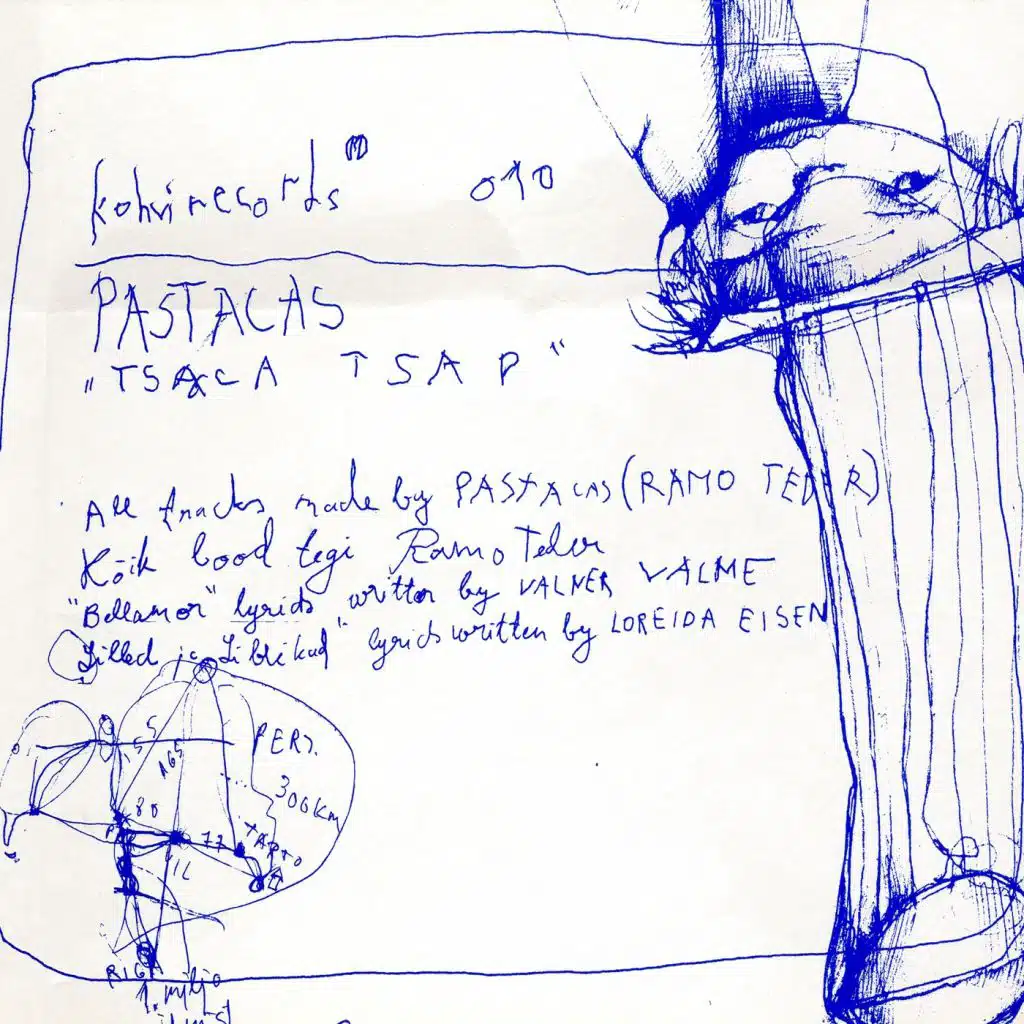 kohvirecords 010
PASTACAS
"TSACA TSAP"
All tracks made by PASTACAS (RAMO TEDER)
Kõik lood tegi Ramo Teder
"Bellamor" lyrics written by VALNER VALME
"Lilled ja Liblikad" lyrics written by LOREIDA EISEN
PERS.
155
165
300KM
80
77
TARTO
VIL
RIGA
1. miljo